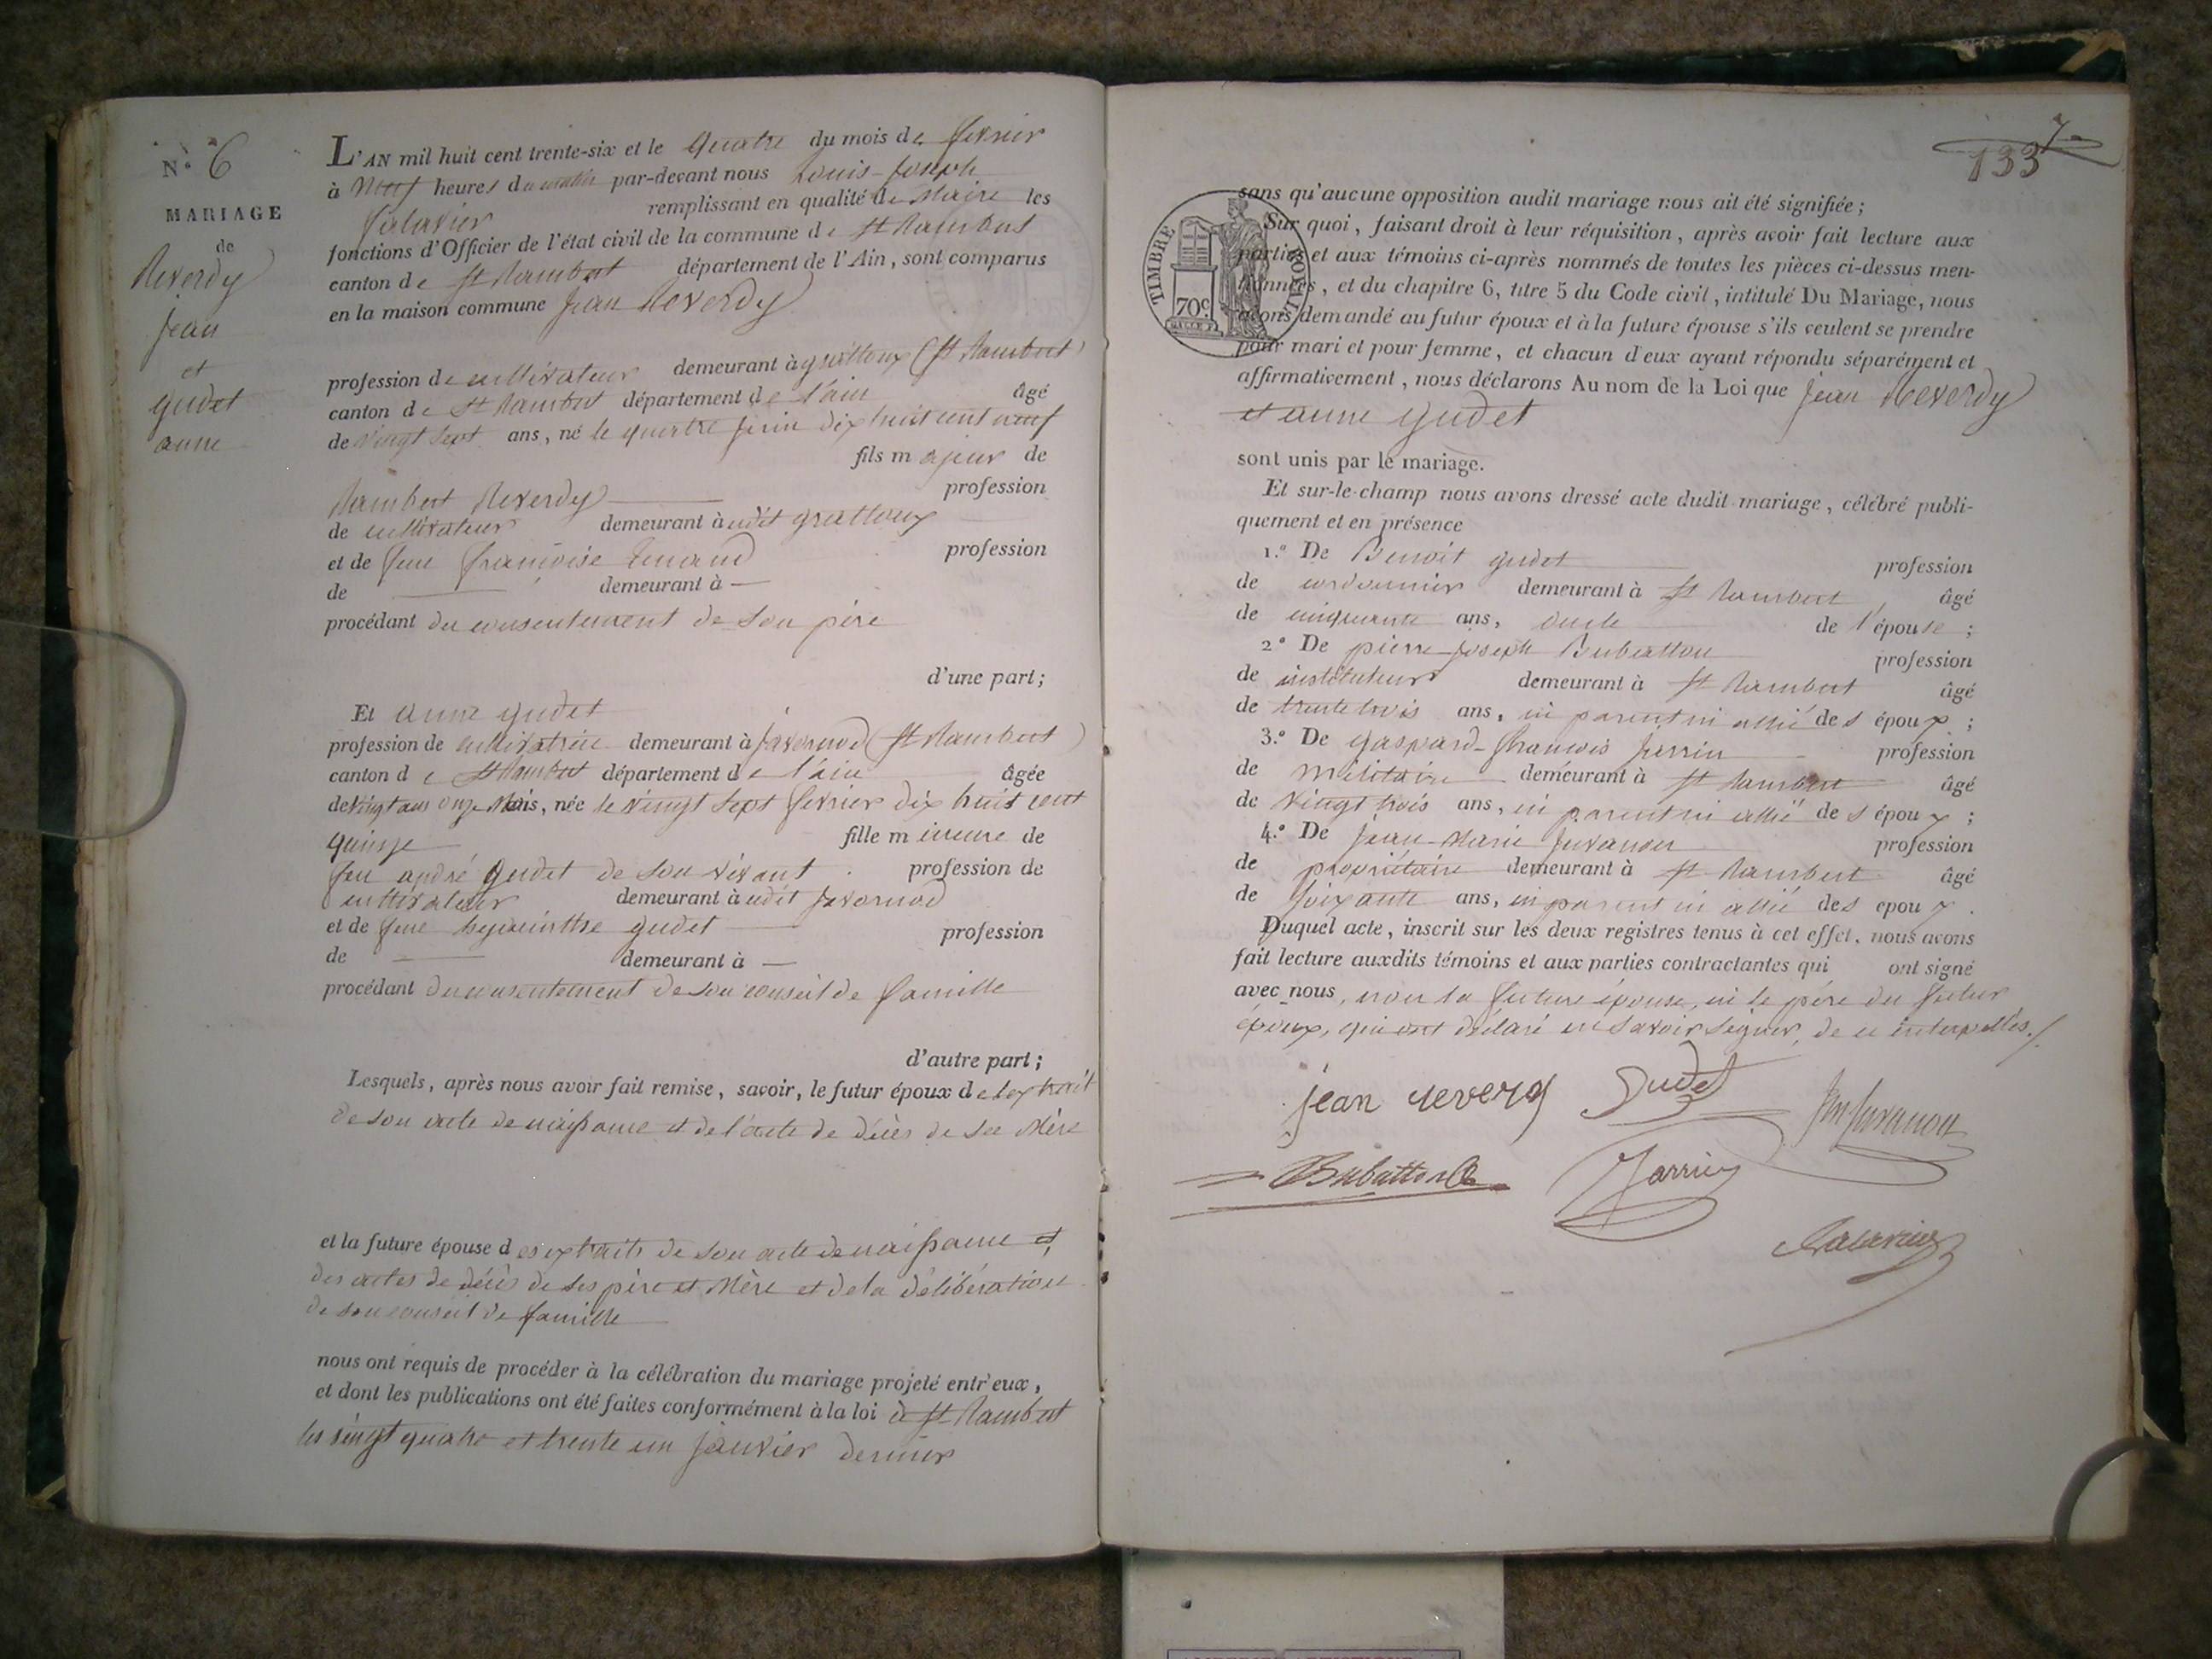 N.º 6
MARIAGE
de
Reverdy
jean
et
gudet
anne
L'AN mil huit cent trente-six et le quatre du mois de fevrier
à neuf heures du matin par-devant nous Louis-Joseph
remplissant en qualité de Maire les
fonctions d'Officier de l'état civil de la commune de St Rambert
canton de St Rambert département de l'Ain, sont comparus
en la maison commune Jean Reverdy
profession de cultivateur demeurant à grattoux (St Rambert)
canton de St Rambert département de l'ain âgé
de vingt sept ans, né le quatre juin dix huit cent neuf
fils majeur de
Rambert Reverdy profession
de cultivateur demeurant à udit grattoux
et de feue françoise profession
de — demeurant à —
procédant du consentement de son père
d'une part;
Et anne gudet
profession de cultivatrice demeurant à javornod (St Rambert)
canton de St Rambert département de l'ain âgée
de vingt ans onze Mois, née le vingt sept fevrier dix huit cent
quinze fille mineure de
feu andré gudet de son vivant profession de
cultivateur demeurant à udit javornod
et de feue hyacinthe gudet profession
de — demeurant à —
procédant du consentement de son conseil de famille
d'autre part;
Lesquels, après nous avoir fait remise, savoir, le futur époux de lextrait
de son acte de naissance et de l'acte de décès de sa Mère
et la future épouse des extraits de son acte de naissance et
des actes de décès de ses père et Mère et de la délibération
de son conseil de famille
nous ont requis de procéder à la célébration du mariage projeté entr'eux,
et dont les publications ont été faites conformément à la loi à St Rambert
les vingt quatre et trente un janvier dernier
7
133
TIMBRE ROYAL
70c.
sans qu'aucune opposition audit mariage nous ait été signifiée;
Sur quoi, faisant droit à leur réquisition, après avoir fait lecture aux
parties et aux témoins ci-après nommés de toutes les pièces ci-dessus men-
tionnées, et du chapitre 6, titre 5 du Code civil, intitulé Du Mariage, nous
avons demandé au futur époux et à la future épouse s'ils veulent se prendre
pour mari et pour femme, et chacun d'eux ayant répondu séparément et
affirmativement, nous déclarons Au nom de la Loi que Jean Reverdy
et anne gudet
sont unis par le mariage.
Et sur-le-champ nous avons dressé acte dudit mariage, célébré publi-
quement et en présence
1.º De Benoit gudet profession
de cordonnier demeurant à St Rambert âgé
de cinquante ans, oncle de l'épouse;
2º De pierre-joseph Bubatton profession
de instituteur demeurant à St Rambert âgé
de trente trois ans, ni parent ni allié des époux;
3.º De gaspard-francois profession
de militaire demeurant à St Rambert âgé
de vingt trois ans, ni parent ni allié des époux;
4.º De jean-Marie Juvanon profession
de propriétaire demeurant à St Rambert âgé
de soixante ans, ni parent ni allié des epoux.
Duquel acte, inscrit sur les deux registres tenus à cet effet, nous avons
fait lecture auxdits témoins et aux parties contractantes qui ont signé
avec nous, non la future épouse, ni le père du futur
époux, qui ont déclaré ne savoir signer, de ce interpellés./.
jean reverdy Gudet Jm Juvanon
Bubatton